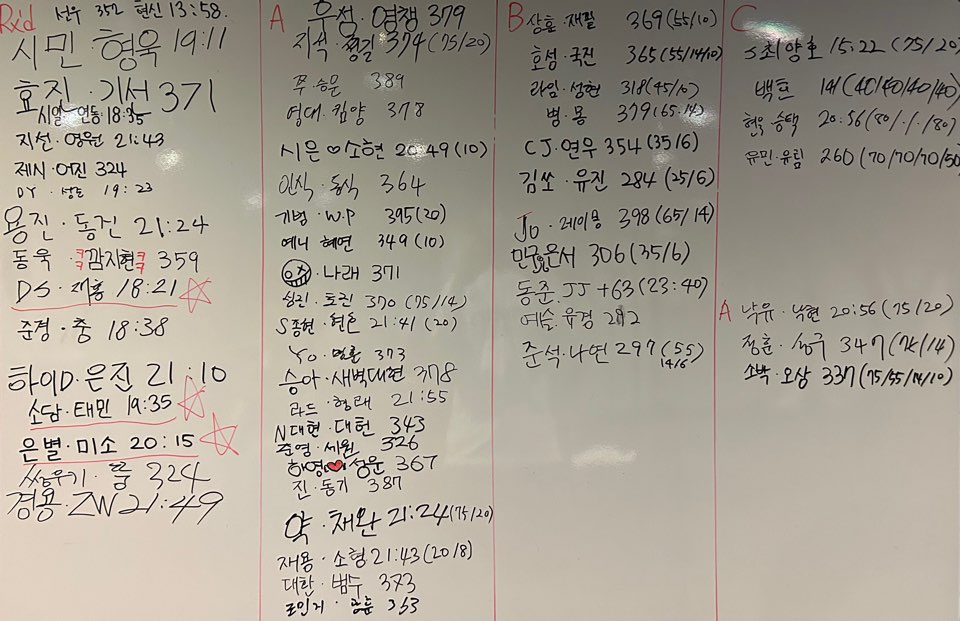 Rx'd
선우 352 현신 13:58
시민 · 형욱 19:11
효진 · 기서 371
시열 · 연동 18:35
지선 · 영원 21:43
제시 · 어진 324
DY · 성훈 19:23
용진 · 동건 21:24
동욱 · 감지현 359
DS · 재홍 18:21
준경 · 충 18:38
하이D · 은진 21:10
소담 · 태민 19:35
은별 · 미소 20:15
쓰루기 · 쭘 324
경용 · ZW 21:49
A
우성 · 영챙 379
지석 · 정길 374 (75/20)
쭈 · 승문 389
영대 · 킴양 378
시은 ♡ 소현 20:49 (10)
인식 · 동식 364
기범 · W.P 395 (20)
예니 혜연 349 (10)
나래 371
원진 · 토진 370 (75/14)
S종현 · 현은 21:41 (20)
Yo · 373
승아 · 새벽대현 378
라드 · 형래 21:55
N대현 · 대헌 343
준영 · 세원 326
하영 ❤ 성운 367
진 · 동기 387
약 · 채완 21:24 (75/20)
재용 · 소형 21:43 (20/8)
대한 · 범수 373
353
B
상훈 · 재필 369 (55/10)
호성 · 국진 365 (55/14/10)
라임 · 성현 318 (45/10)
병 · 용 379 (65·14)
CJ · 연우 354 (35/6)
김쏘 · 유진 284 (25/6)
Jo · 제이용 398 (65/14)
민구 은서 306 (35/6)
동준 · JJ +63 (23:40)
예슬 · 유경 212
준석 · 나연 297 (55/14/6)
C
S최 양호 15:22 (75/20)
백호 141 (40/40/40/40)
현우 승택 20:56 (80/·/·/80)
유민 · 유림 260 (70/70/70/50)
A
낙유 · 낙현 20:56 (75/20)
정훈 · 성우 347 (75/14)
소박 · 오상 337 (75/55/14/10)